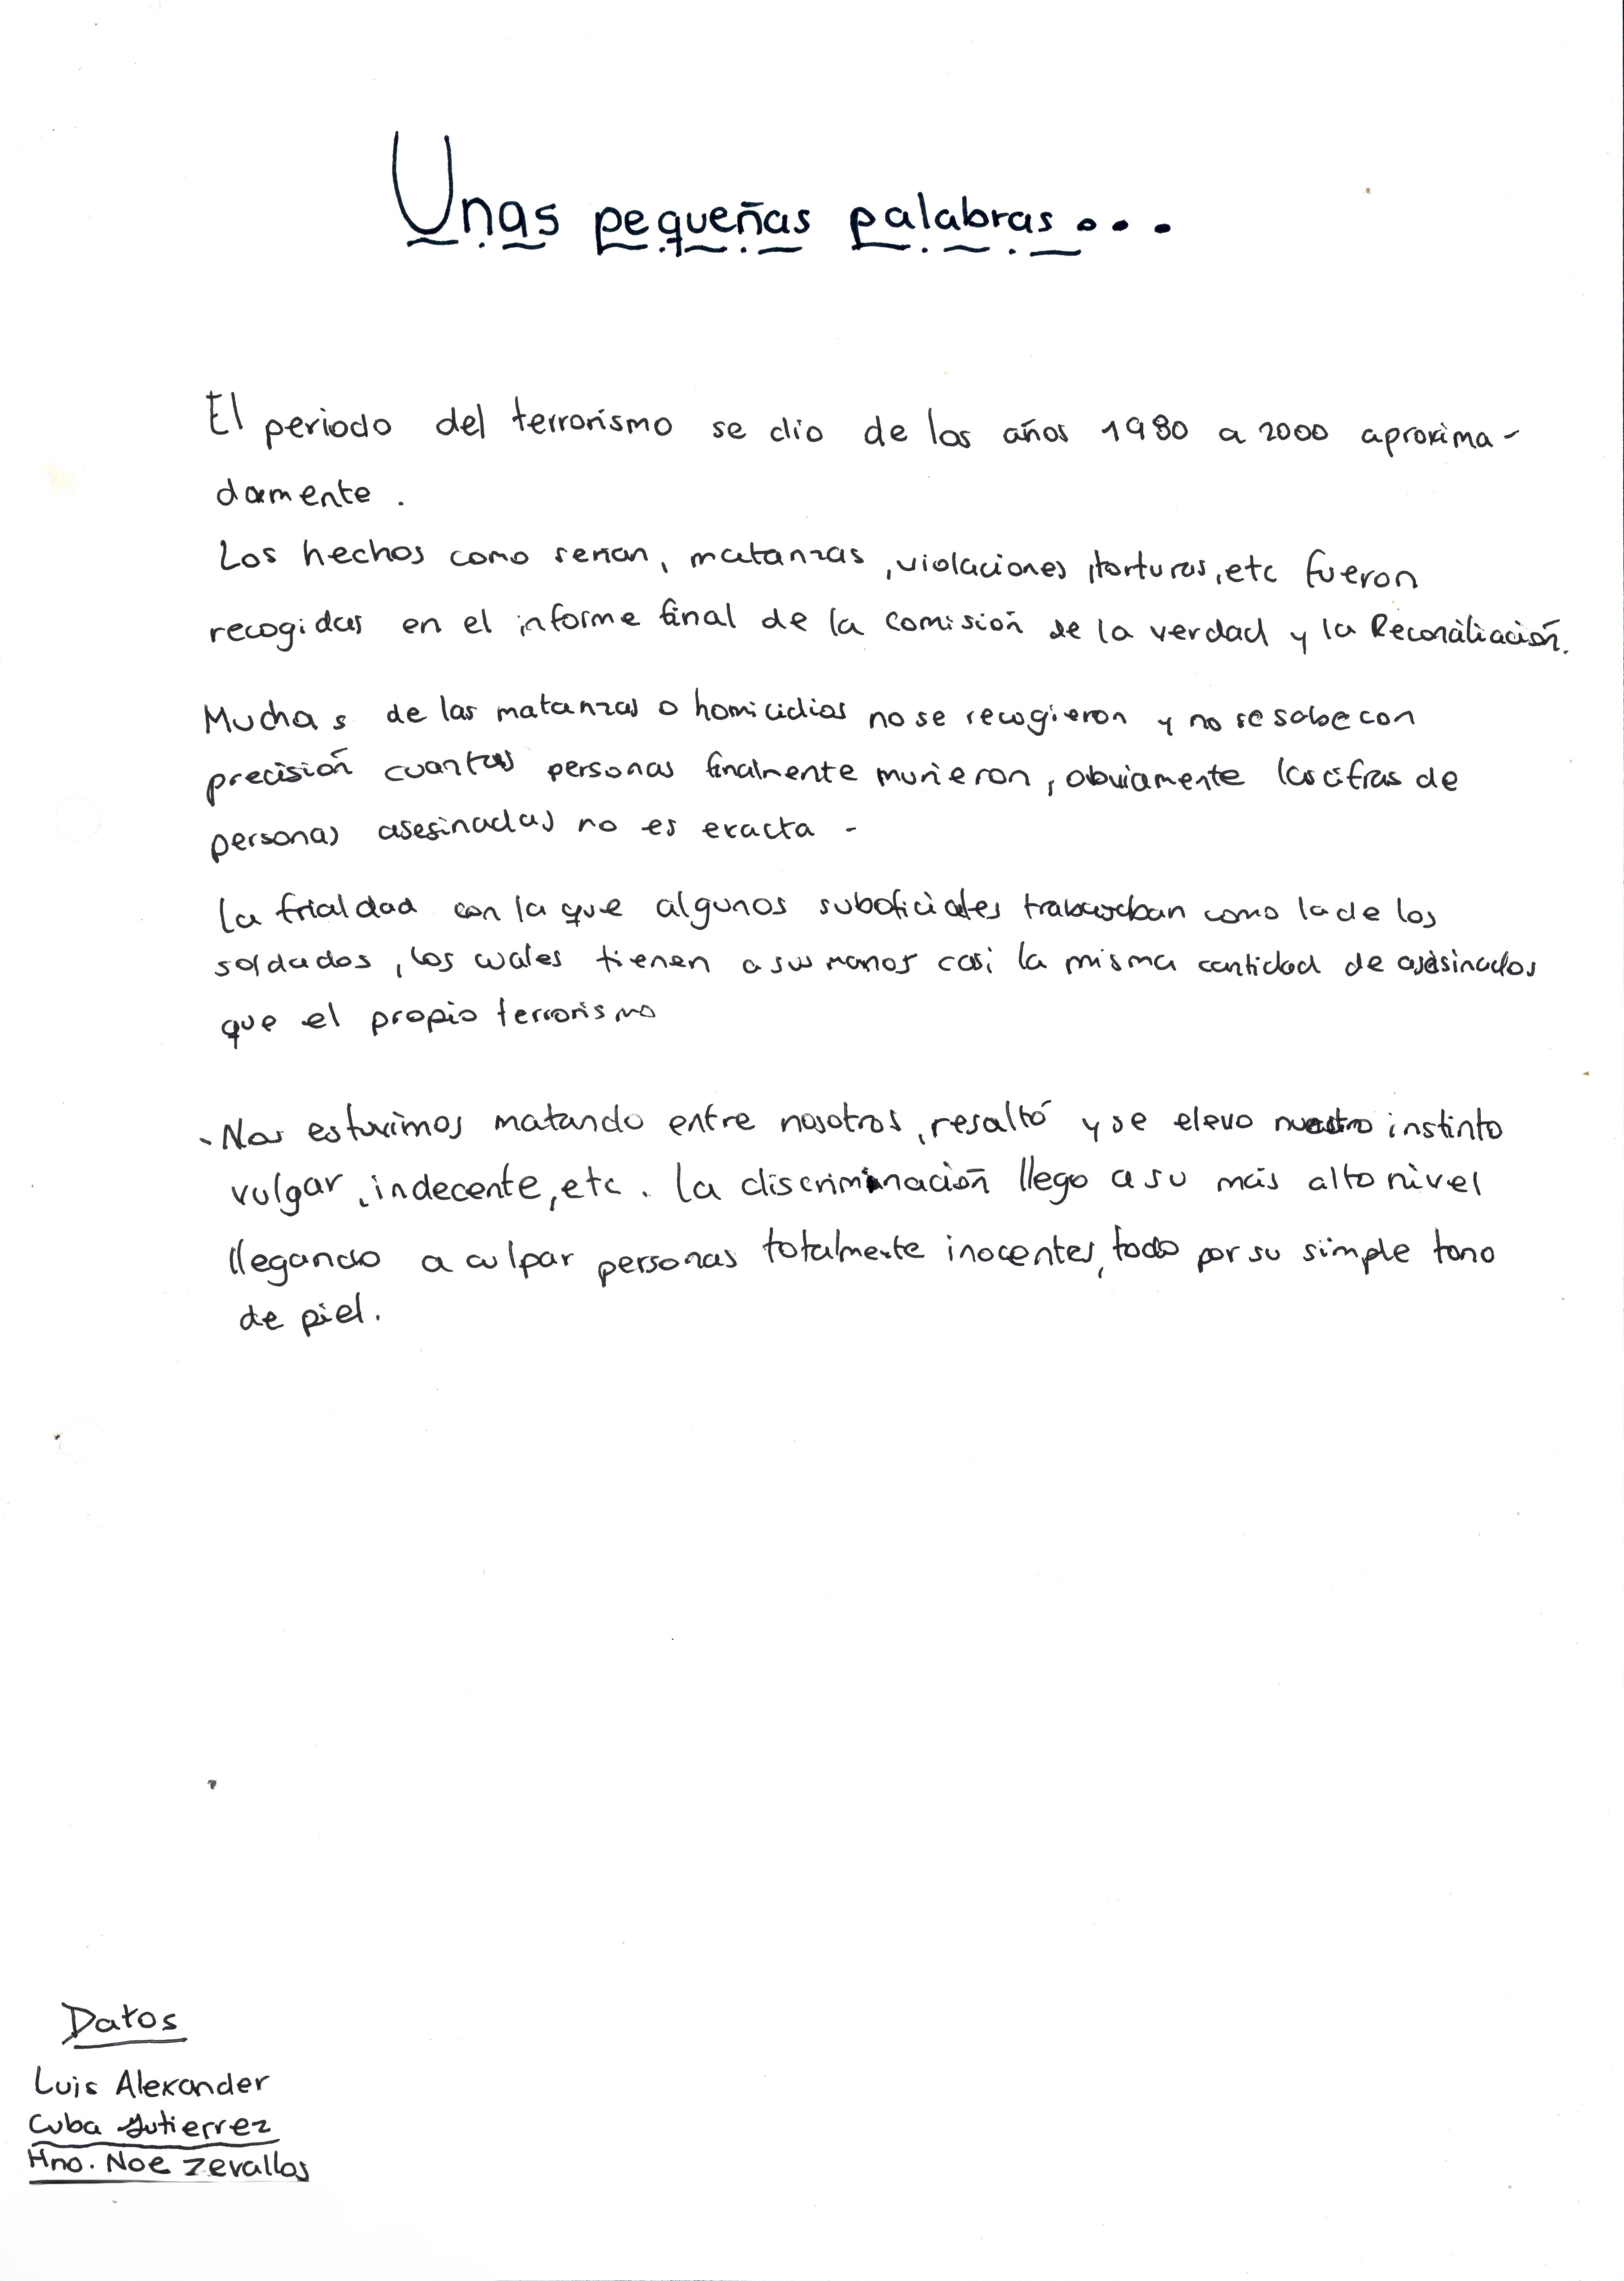 Unas pequeñas palabras...
El periodo del terrorismo se dio de los años 1980 a 2000 aproxima-
damente.
Los hechos como serian, matanzas, violaciones, torturas, etc fueron
recogidas en el informe final de la comisión de la verdad y la Reconciliación.
Muchas de las matanzas o homicidios no se recogieron y no se sabe con
precisión cuantas personas finalmente murieron, obviamente las cifras de
personas asesinadas no es exacta -
La frialdad con la que algunos suboficiales trabajaban como la de los
soldados, los cuales tienen a sus manos casi la misma cantidad de asesinados
que el propio terrorismo
- Nos estuvimos matando entre nosotros, resaltó y se elevo nuestro instinto
vulgar, indecente, etc. La discriminación llego a su más alto nivel
llegando a culpar personas totalmente inocentes, todo por su simple tono
de piel.
Datos
Luis Alexander
Cuba Gutierrez
Hno. Noe Zevallos